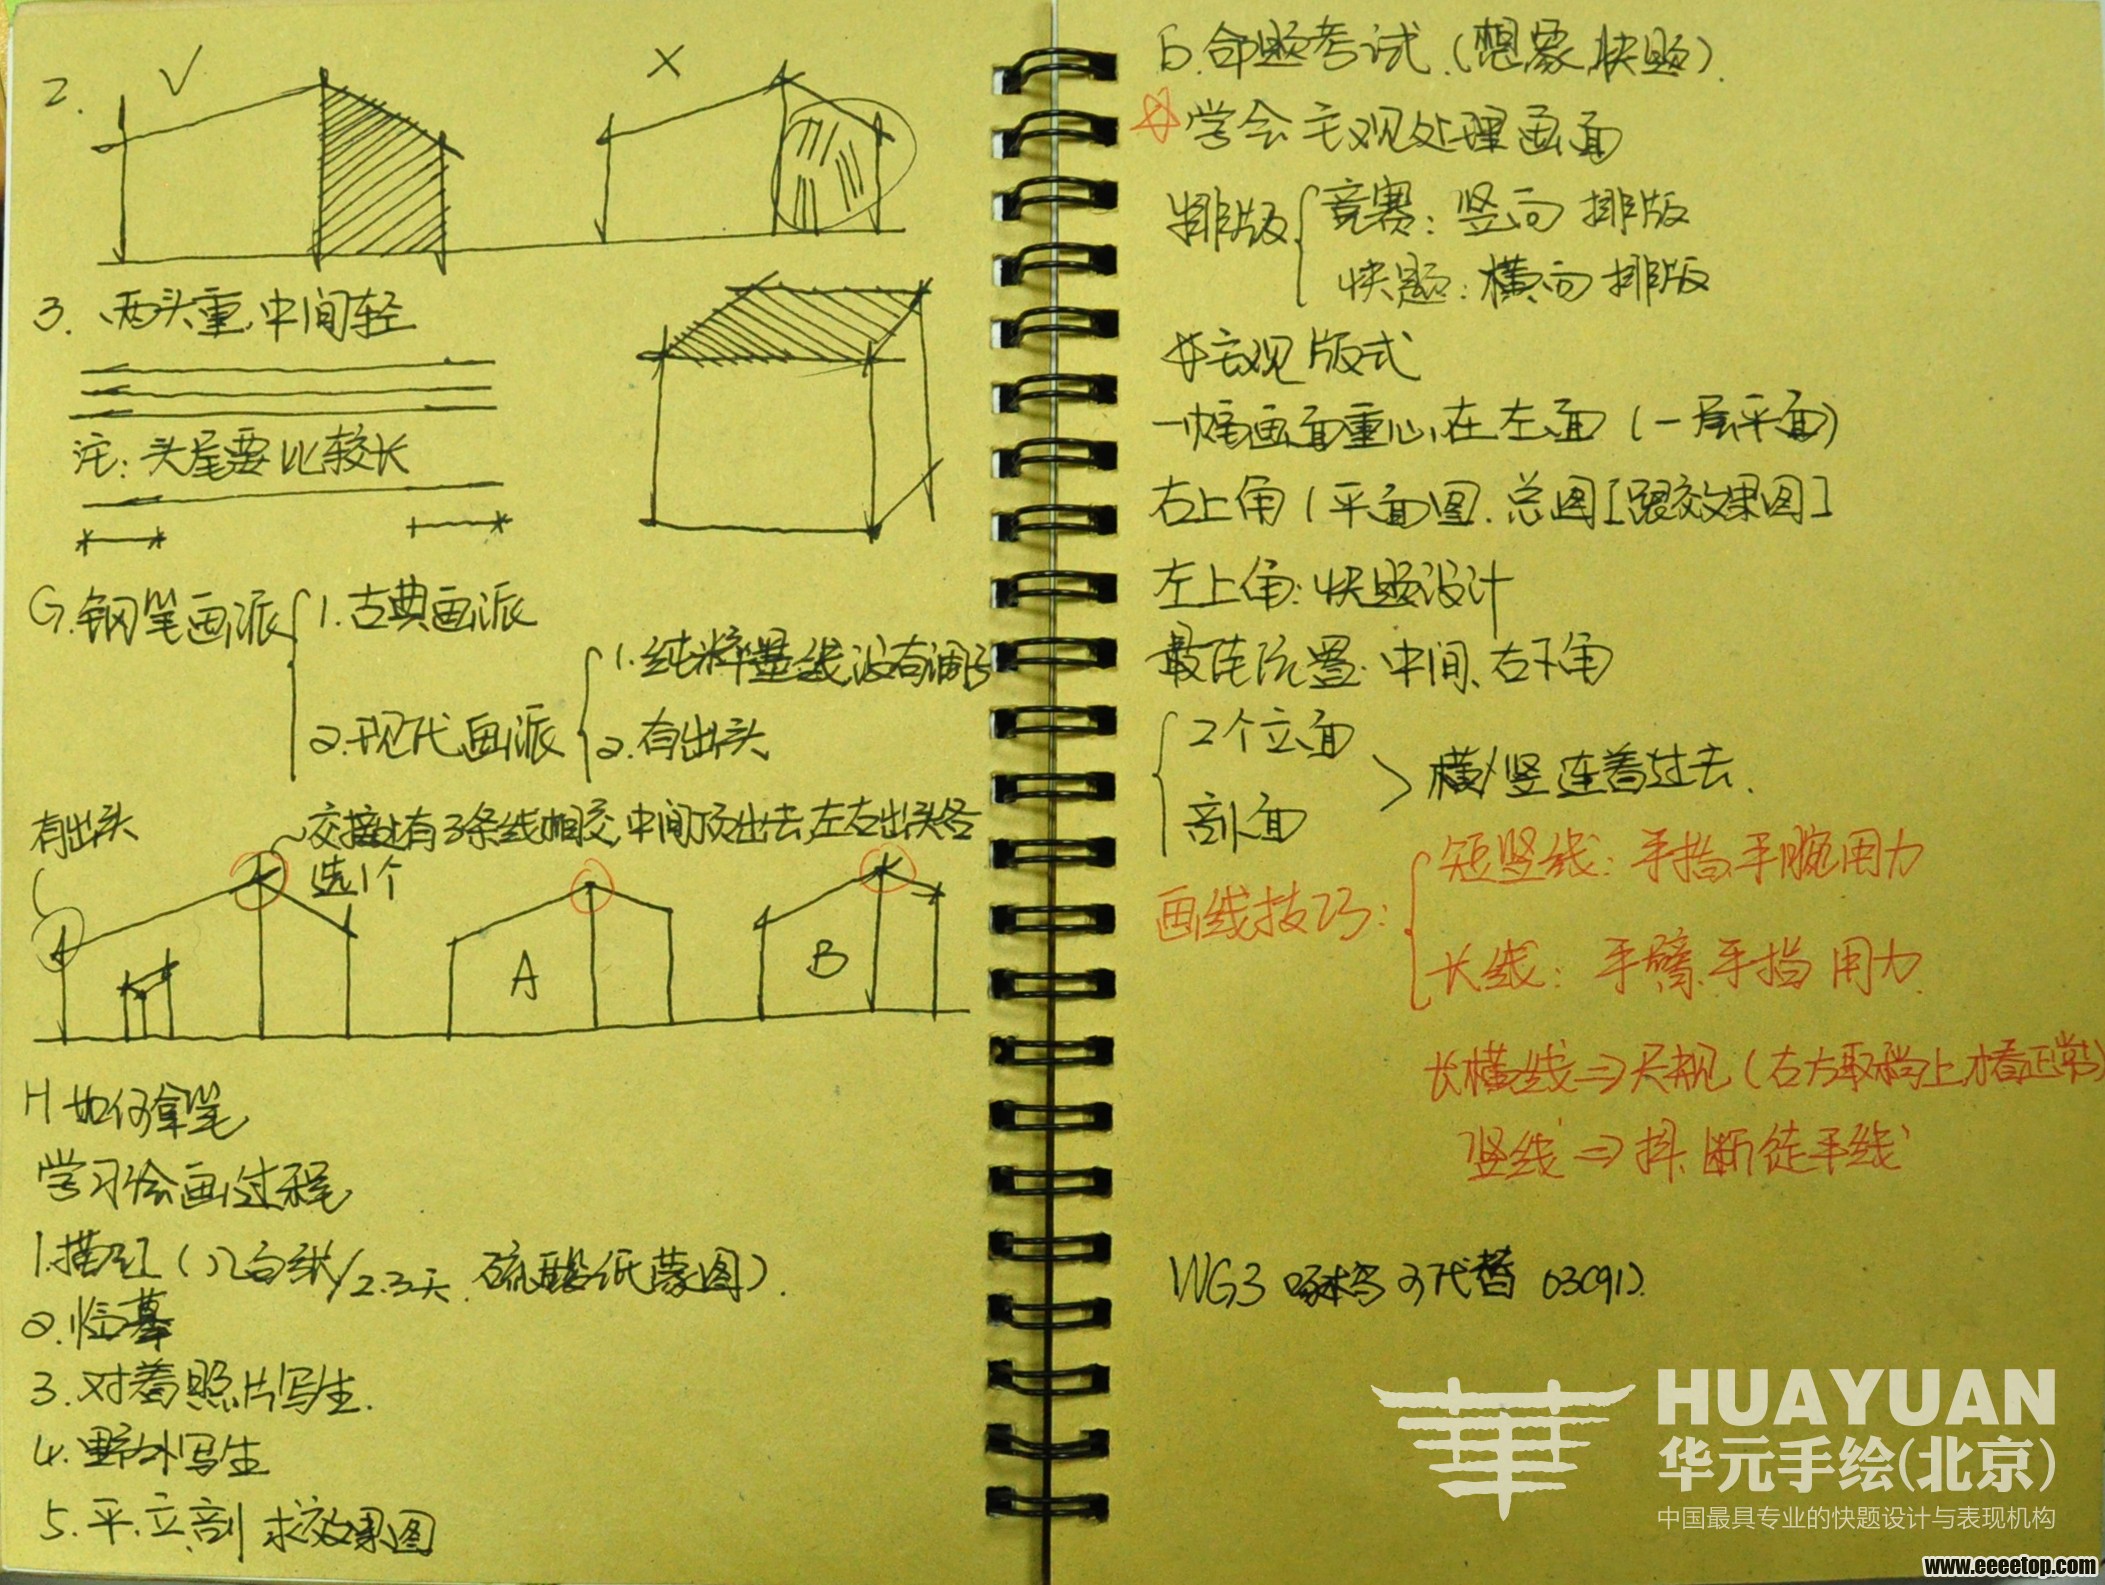 2. √ ×
3. 两头重,中间轻
注:头尾要比较长
G.钢笔画派 1.古典画派
1.纯粹墨线,没有调子
2.现代画派 2.有出头
有出头 交接处有3条线相交,中间顶出去,左右出头各
选1个
A B
H 如何拿笔
学习绘画过程
1.描红(从白纸/2.3天.硫酸纸蒙图).
2.临摹
3.对着照片写生.
4.野外写生
5.平.立.剖 求效果图
6.命题考试.(想象,快题).
☆学会主观处理画面
排版 竞赛:竖向排版
快题:横向排版
主观版式
一幅画面重心,在左面(一层平面)
右上角(平面图.总图[跟效果图]
左上角:快题设计
最佳位置:中间、右下角
2个立面
剖面 横/竖连着过去.
画线技巧: 短竖线:手指,手腕用力
长线:手臂.手指用力.
长横线⇒
竖线⇒抖、断徒手线
WG3 啄木鸟可代替 03(91).
HUAYUAN
华元手绘(北京)
中国最具专业的快题设计与表现机构
www.eeeetop.com